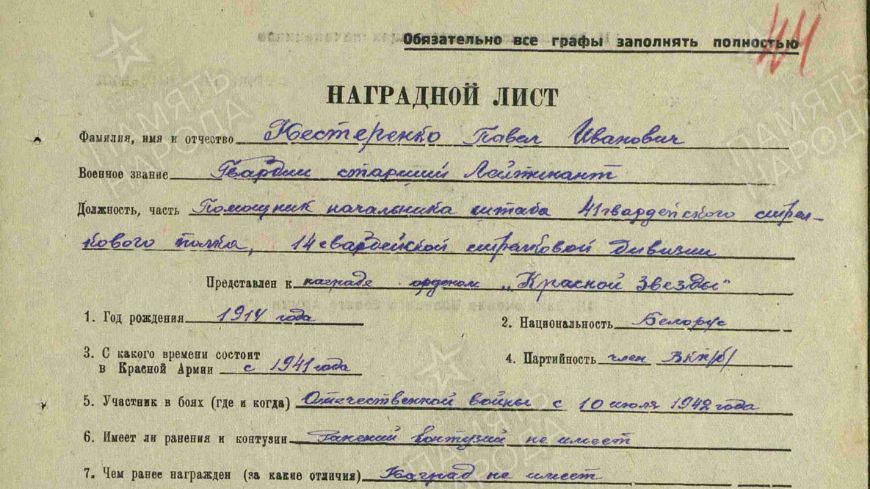 441
Обязательно все графы заполнять полностью
НАГРАДНОЙ ЛИСТ
Фамилия, имя и отчество Нестеренко Павел Иванович
Военное звание Гвардии старший Лейтенант
Должность, часть Помощник начальника штаба 41 гвардейского стрел-
кового полка, 14 гвардейской стрелковой дивизии
Представлен к награде орденом „Красной Звезды"
1. Год рождения 1914 года
2. Национальность Белорус
3. С какого времени состоит
в Красной Армии с 1941 года
4. Партийность член ВКП(б)
5. Участник в боях (где и когда) Отечественной войны с 10 июля 1942 года
6. Имеет ли ранения и контузии Ранений контузий не имеет
7. Чем ранее награжден (за какие отличия) Наград не имеет
ПАМЯТЬ
НАРОДА